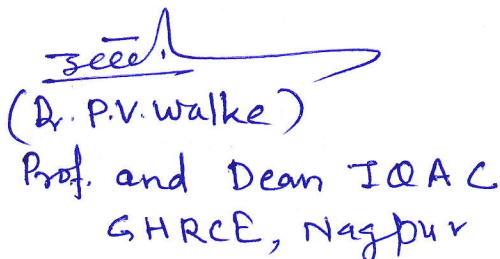 (Dr. P.V. Walke)
Prof. and Dean IQAC
GHRCE, Nagpur